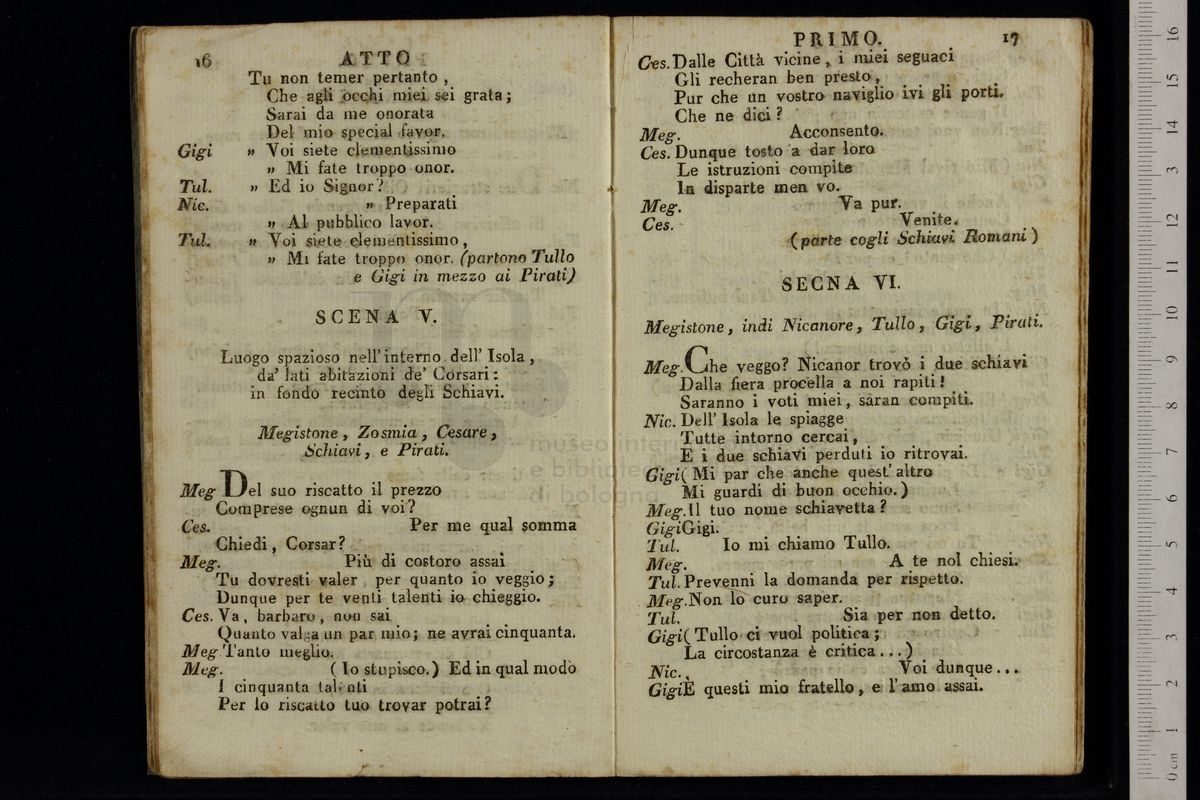 16 ATTO
Tu non temer pertanto,
Che agli occhi miei sei grata;
Sarai da me onorata
Del mio special favor.
Gigi » Voi siete clementissimo
» Mi fate troppo onor.
Tul. » Ed io Signor?
Nic. » Preparati
» Al pubblico lavor.
Tul. » Voi siete clementissimo,
» Mi fate troppo onor. (partono Tullo
e Gigi in mezzo ai Pirati)
SCENA V.
Luogo spazioso nell' interno dell' Isola,
da' lati abitazioni de' Corsari:
in fondo recinto degli Schiavi.
Megistone, Zosmia, Cesare,
Schiavi, e Pirati.
Meg Del suo riscatto il prezzo
Comprese ognun di voi?
Ces. Per me qual somma
Chiedi, Corsar?
Meg. Più di costoro assai
Tu dovresti valer per quanto io veggio;
Dunque per te venti talenti io chieggio.
Ces. Va, barbaro, non sai
Quanto valga un par mio; ne avrai cinquanta.
Meg. Tanto meglio.
Meg. (Io stupisco.) Ed in qual modo
I cinquanta talenti
Per lo riscatto tuo trovar potrai?
PRIMO. 17
Ces. Dalle Città vicine, i miei seguaci
Gli recheran ben presto,
Pur che un vostro naviglio ivi gli porti.
Che ne dici?
Meg. Acconsento.
Ces. Dunque tosto a dar loro
Le istruzioni compite
In disparte men vo.
Meg. Va pur.
Ces. Venite.
(parte cogli Schiavi Romani)
SECNA VI.
Megistone, indi Nicanore, Tullo, Gigi, Pirati.
Meg. Che veggo? Nicanor trovò i due schiavi
Dalla fiera procella a noi rapiti!
Saranno i voti miei, saran compiti.
Nic. Dell' Isola le spiagge
Tutte intorno cercai,
E i due schiavi perduti io ritrovai.
Gigi (Mi par che anche quest' altro
Mi guardi di buon occhio.)
Meg. Il tuo nome schiavetta?
Gigi Gigi.
Tul. Io mi chiamo Tullo.
Meg. A te nol chiesi.
Tul. Prevenni la domanda per rispetto.
Meg. Non lo curo saper.
Tul. Sia per non detto.
Gigi (Tullo ci vuol politica;
La circostanza è critica...)
Nic. Voi dunque...
Gigi È questi mio fratello, e l'amo assai.
museo inter
e bibliote
di bologna
0 cm 1 2 3 4 5 6 7 8 9 10 11 12 13 14 15 16